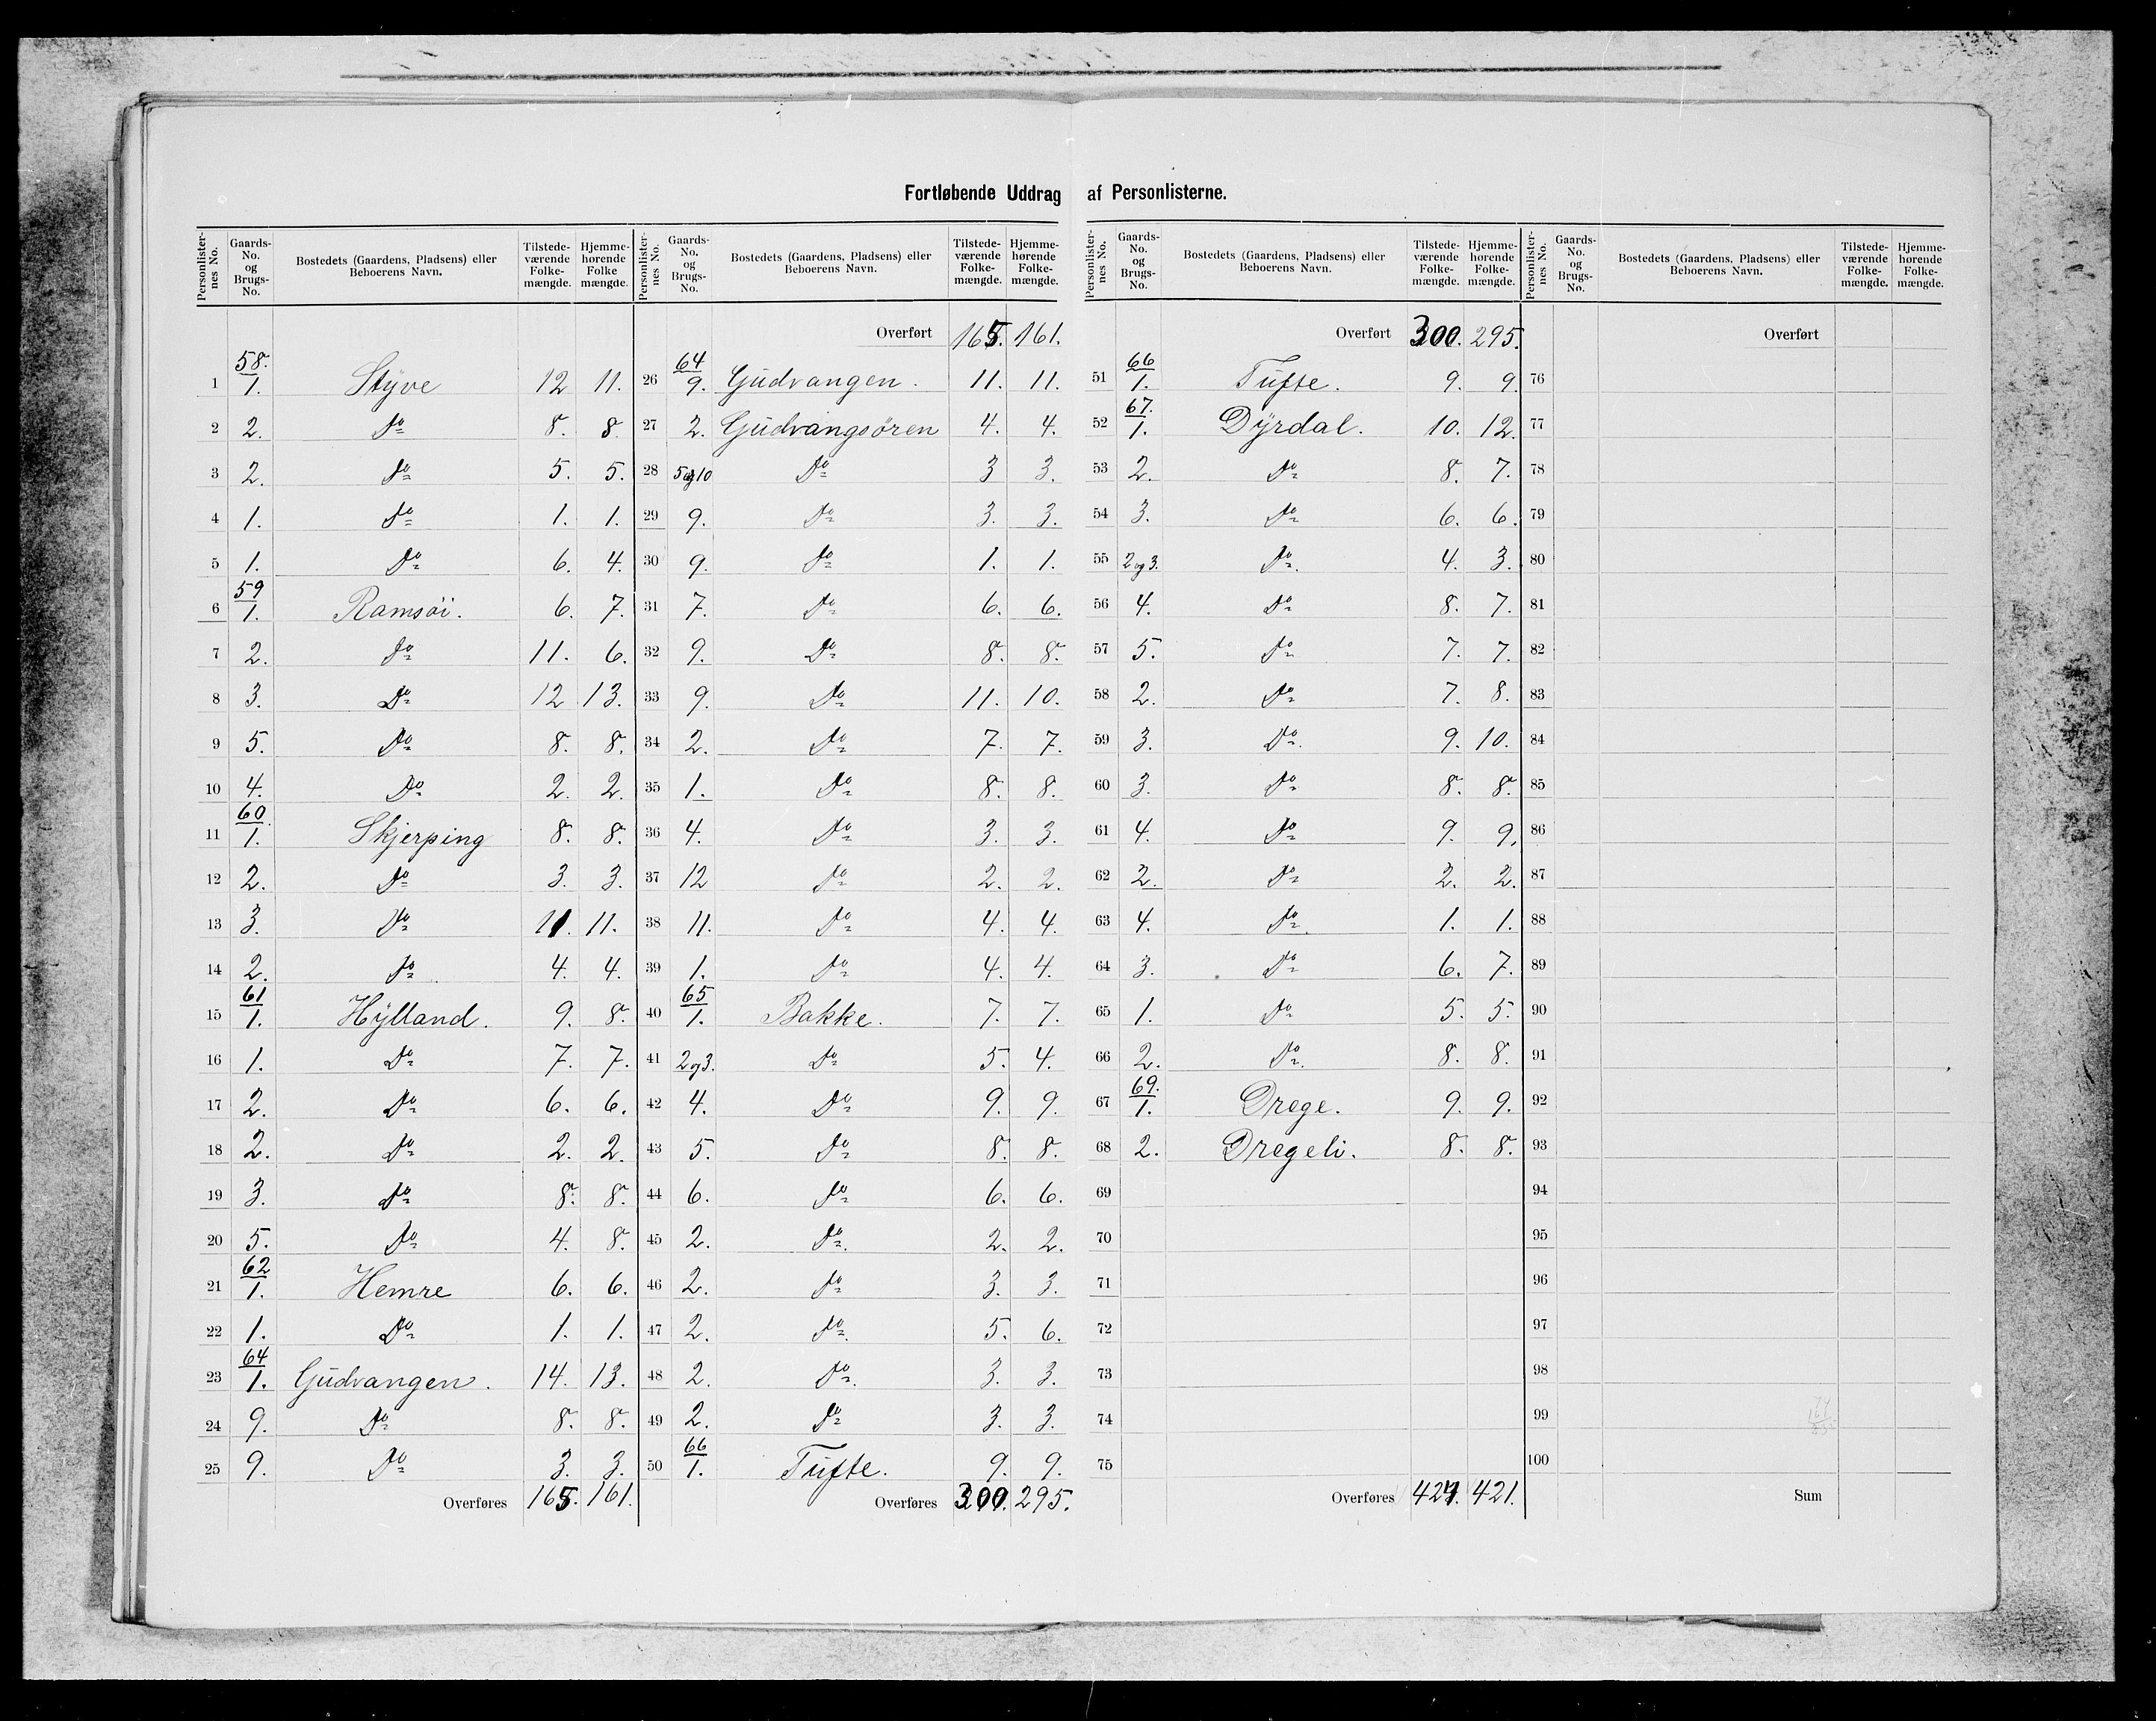 Fortløbende Uddrag af Personlisterne.
Personlister-nes No. | Gaards-No. og Brugs-No. | Bostedets (Gaardens, Pladsens) eller Beboerens Navn. | Tilstede-værende Folke-mængde. | Hjemme-hørende Folke mængde.
1 58./1. Styve 12 11.
2 2. Do 8. 8
3 2. Do 5. 5.
4 1. Do 1. 1.
5 1. Do 6. 4.
6 59/1. Ramsöi. 6. 7.
7 2. Do 11. 6.
8 3. Do 12 13.
9 5. Do 8. 8.
10 4. Do 2. 2.
11 60/1. Skjerping 8. 8.
12 2. Do 3. 3.
13 3. Do 11. 11.
14 2. Do 4. 4.
15 61/1. Hylland. 9. 8.
16 1. Do 7. 7.
17 2. Do 6. 6.
18 2. Do 2. 2.
19 3. Do 8. 8.
20 5. Do 4. 8.
21 62/1. Hemre 6. 6.
22 1. Do 1. 1.
23 64/1. Gudvangen. 14. 13.
24 9. Do 8. 8.
25 9. Do 3. 3.
Overføres 165. 161.
Personlister-nes No. | Gaards-No. og Brugs-No. | Bostedets (Gaardens, Pladsens) eller Beboerens Navn. | Tilstede-værende Folke-mængde. | Hjemme-hørende Folke-mængde.
Overført 165. 161.
26 64/9. Gudvangen. 11. 11.
27 2. Gudvangsören 4. 4.
28 5og10 Do 3 3.
29 9. Do 3. 3.
30 9. Do 1. 1.
31 7. Do 6. 6.
32 9. Do 8. 8.
33 9. Do 11. 10.
34 2. Do 7. 7.
35 1. Do 8. 8.
36 4. Do 3. 3.
37 12 Do 2. 2.
38 11. Do 4. 4.
39 1. Do 4. 4.
40 65/1. Bakke. 7. 7.
41 2og3. Do 5. 4.
42 4. Do 9. 9.
43 5. Do 8. 8.
44 6. Do 6. 6.
45 2. Do. 2. 2.
46 2. Do 3. 3.
47 2. Do. 5. 6.
48 2. Do. 3. 3.
49 2. Do 3. 3.
50 66/1. Tufte. 9. 9.
Overføres 300. 295.
Personlister-nes No. | Gaards-No. og Brugs-No. | Bostedets (Gaardens, Pladsens) eller Beboerens Navn. | Tilstede-værende Folke-mængde. | Hjemme-hørende Folke-mængde.
Overført 300. 295.
51 66/1. Tufte. 9. 9.
52 67./1. Dyrdal. 10. 12.
53 2. Do 8. 7.
54 3. Do 6. 6.
55 2og3. Do. 4. 3.
56 4. Do 8. 7.
57 5. Do 7. 7.
58 2. Do 7. 8.
59 3. Do. 9. 10.
60 3. Do 8. 8.
61 4. Do 9. 9.
62 2. Do 2. 2.
63 4. Do. 1. 1.
64 3. Do 6. 7.
65 1. Do 5. 5.
66 2. Do. 8. 8.
67 69./1. Drege. 9. 9.
68 2. Dregeli. 8. 8.
69
70
71
72
73
74
75
Overføres 424. 421.
Personlister-nes No. | Gaards-No. og Brugs-No. | Bostedets (Gaardens, Pladsens) eller Beboerens Navn. | Tilstede-værende Folke-mængde. | Hjemme-hørende Folke-mængde.
Overført
76
77
78
79
80
81
82
83
84
85
86
87
88
89
90
91
92
93
94
95
96
97
98
99
100
Sum